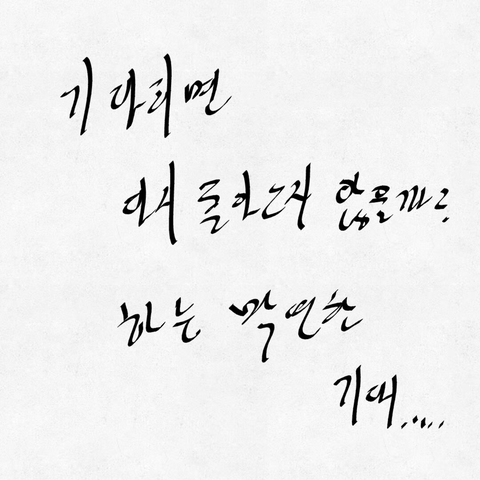 기다리면
다시 돌아오지 않을까?
하는 막연한
기대.....